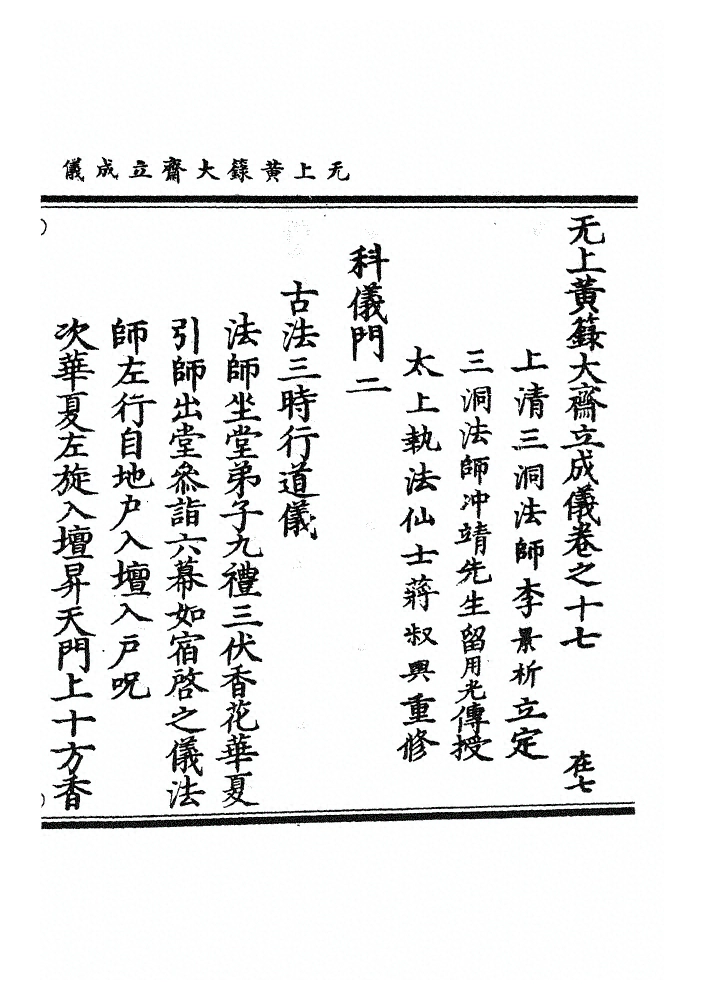 无上黃籙大齋立成儀
无上黃籙大齋立成儀卷之十七 在七
上清三洞法師李景祈立定
三洞法師冲靖先生留用光傳授
太上執法仙士蔣叔輿重修
科儀門二
古法三時行道儀
法師坐堂弟子九禮三伏香花華夏
引師出堂叅詣六幕如宿啓之儀法
師左行自地户入壇入戸呪
次華夏左旋入壇昇天門上十方香